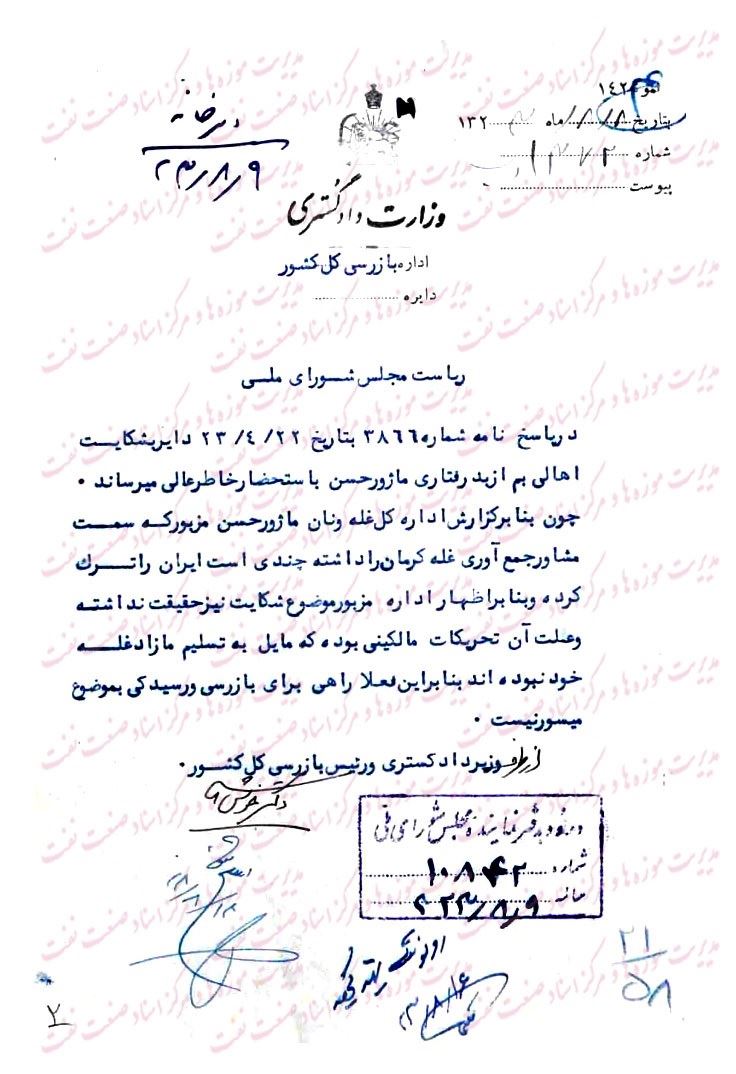 نمونه ۱۴۲
بتاریخ ۸/۸ ماه ۱۳۲
شماره
پیوست
دبیرخانه
۲۳/۸/۹
وزارت دادگستری
اداره بازرسی کل کشور
دایره
ریاست مجلس شورای ملی
در پاسخ نامه شماره ۳۸۶۶ بتاریخ ۲۳/۴/۲۲ دایر بشکایت
اهالی بم از بدرفتاری ماژور حسن باستحضار خاطر عالی میرساند .
چون بنا برگزارش اداره کل غله ونان ماژور حسن مزبور که سمت
مشاور جمع آوری غله کرمان را داشته چندی است ایران را ترک
کرده و بنا بر اظهار اداره مزبور موضوع شکایت نیز حقیقت نداشته
وعلت آن تحریکات مالکینی بوده که مایل به تسلیم مازاد غله
خود نبوده اند بنابراین فعلا راهی برای بازرسی ورسیدگی بموضوع
میسور نیست .
از طرف وزیر دادگستری ورئیس بازرسی کل کشور .
ورود بدفتر نماینده مجلس شورای ملی
شماره ۱۰۸۴۲
۲۳/۸/۹
۲۱
۵۸
۲
مدیریت موزه ها و مرکز اسناد صنعت نفت